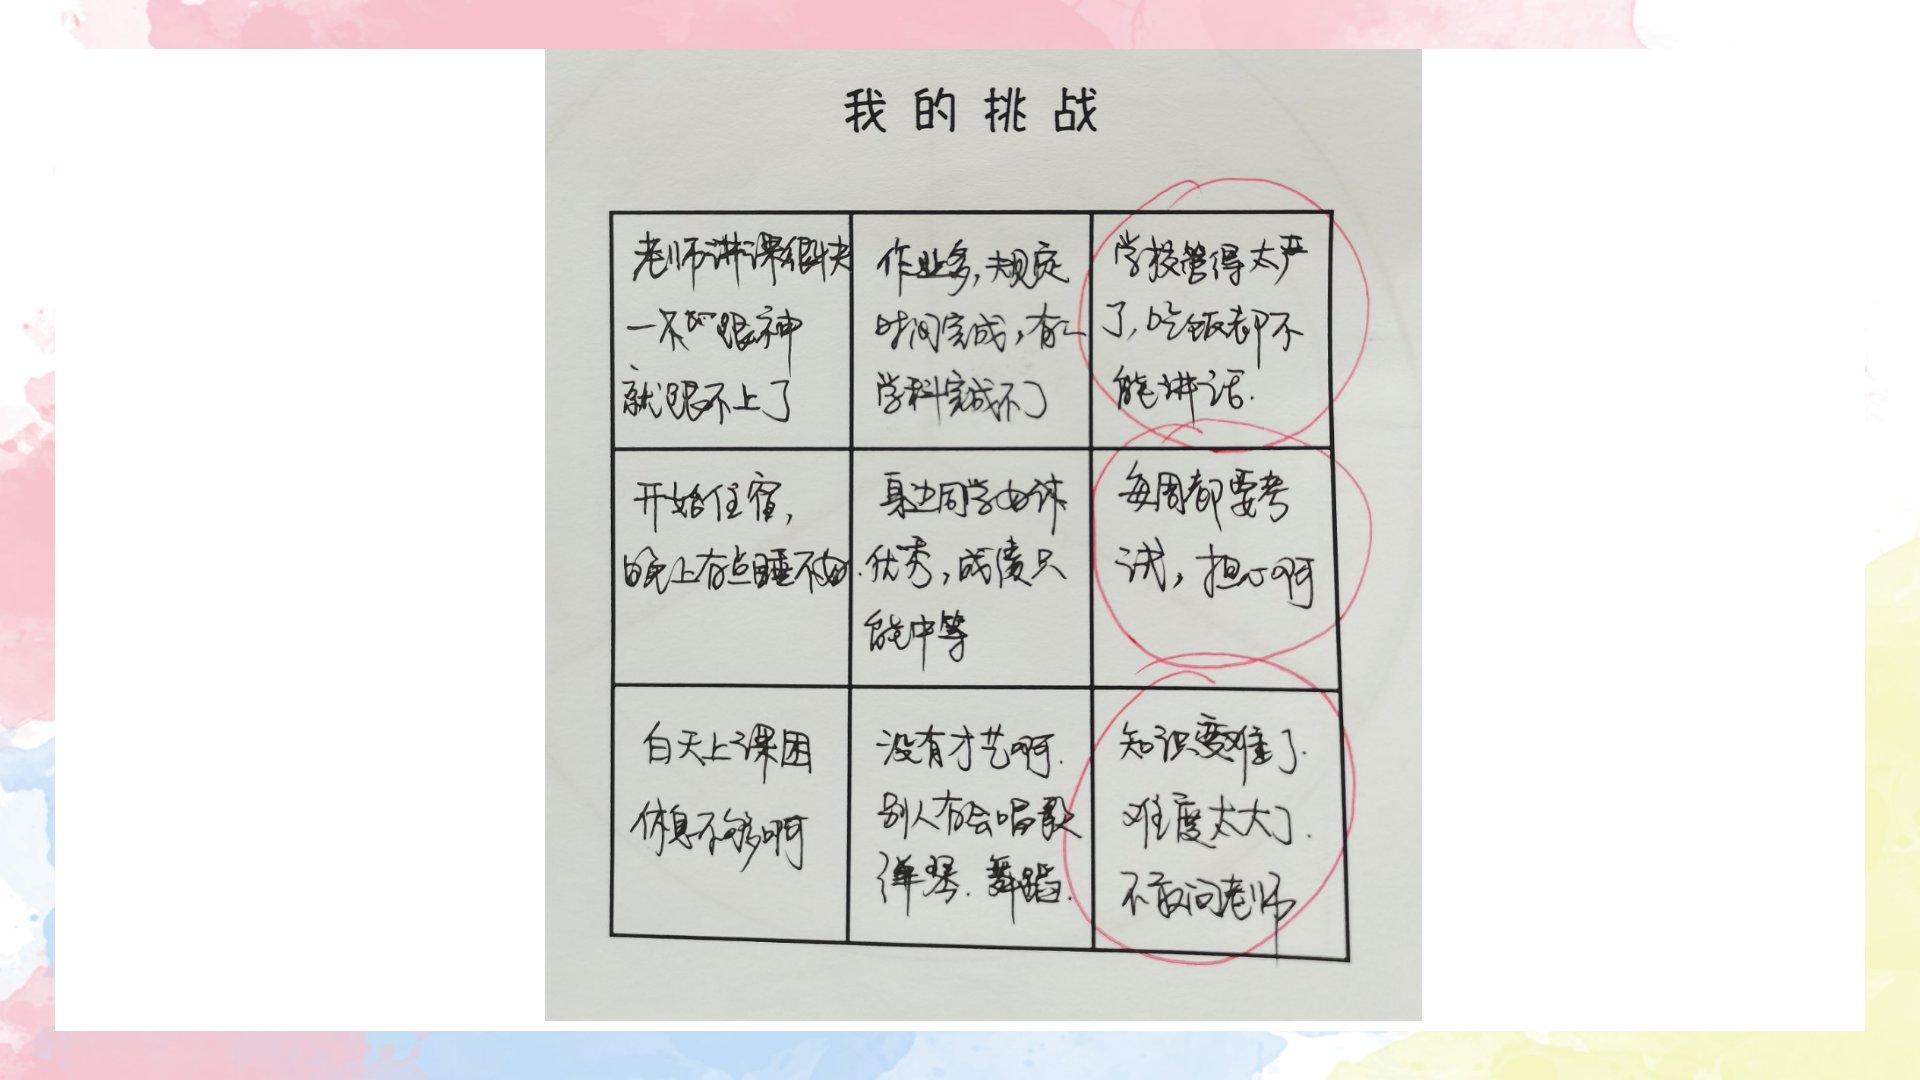 我的挑战
老师讲课很快
一不留神
就跟不上了
作业多,规定
时间完成,有的
学科完成不了
学校管得太严
了,吃饭都不
能讲话.
开始住宿,
晚上有点睡不好.
身边同学也许
优秀,成绩只
能中等
每周都要考
试,担心啊
白天上课困
休息不够啊
没有才艺啊.
别人有会唱歌
弹琴.舞蹈.
知识变难了.
难度太大了.
不敢问老师